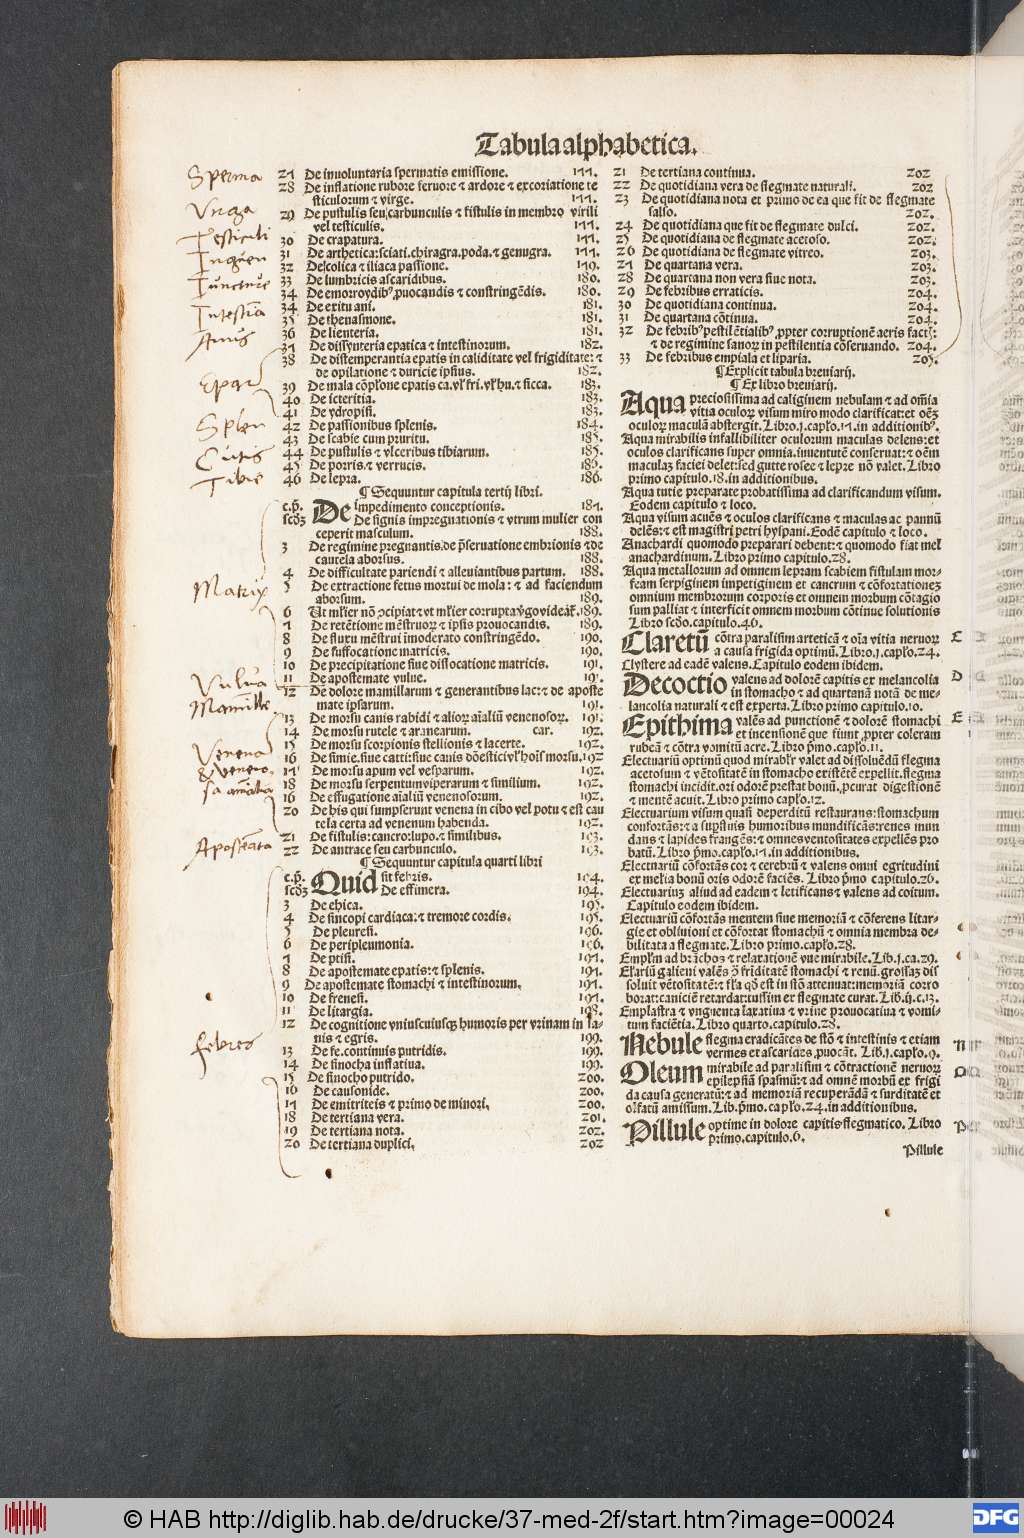 Tabula alphabetica.
Sperma
Virga
Testiculi
Inguen
Iuncture
Intestīa
Anus
Epar
Splen
Cutis
Tibie
Matrix
Vulua
Mamille
Venena
& veneno-
sa aīalia
Apostēata
febres
27 De inuoluntaria spermatis emissione. 177.
28 De inflatione rubore feruore ⁊ ardore ⁊ excoriatione te
sticulorum ⁊ virge. 177.
29 De pustulis seu carbunculis ⁊ fistulis in membro virili
vel testiculis. 177.
30 De crapatura. 177.
31 De arthetica: sciati. chiragra. poda. ⁊ genugra. 177.
32 De colica ⁊ iliaca passione. 179.
33 De lumbricis ascaridibus. 180.
34 De emoroydibꝰ ꝓuocandis ⁊ constringēdis. 180.
34 De exitu ani. 181.
35 De thenasmone. 181.
36 De lienteria. 181.
37 De dissynteria epatica ⁊ intestinorum. 182.
38 De distemperantia epatis in caliditate vel frigiditate: ⁊
de opilatione ⁊ duricie ipsius. 182.
39 De mala cōplōne epatis ca. vl̓ fri. vl̓ hu. ⁊ sicca. 183.
40 De icteritia. 183.
41 De ydropisi. 183.
42 De passionibus splenis. 184.
43 De scabie cum pruritu. 185.
44 De pustulis ⁊ vlceribus tibiarum. 185.
45 De porris ⁊ verrucis. 186.
46 De lepra. 186.
¶ Sequuntur capitula tertij libri.
c.p̄. De impedimento conceptionis. 187.
scd̄ꝫ De signis impregnationis ⁊ vtrum mulier con
ceperit masculum. 188.
3 De regimine pregnantis. de p̄seruatione embrionis ⁊ de
cautela aborsus. 188.
4 De difficultate pariendi ⁊ alleuiantibus partum. 188.
5 De extractione fetus mortui de mola: ⁊ ad faciendum
aborsum. 189.
6 Ut ml̓ier nō ꝯcipiat ⁊ vt ml̓ier corrupta v̓go videat̄. 189.
7 De retētione mēstruoꝝ ⁊ ipsis prouocandis. 189.
8 De fluxu mēstrui īmoderato constringēdo. 190.
9 De suffocatione matricis. 190.
10 De precipitatione siue dislocatione matricis. 191.
11 De apostemate vulue. 191.
12 De dolore mamillarum ⁊ generantibus lac: ⁊ de aposte
mate ipsarum. 191.
13 De morsu canis rabidi ⁊ alioꝝ aīaliū venenosoꝝ. 191.
14 De morsu rutele ⁊ aranearum. car. 192.
15 De morsu scorpionis stellionis ⁊ lacerte. 192.
16 De simie. siue catti: siue canis dōestici vl̓ hoīs morsu. 192
17 De morsu apum vel vesparum. 192.
18 De morsu serpentum viperarum ⁊ similium. 192.
16 De effugatione aīaliū venenosorum. 192.
20 De his qui sumpserunt venena in cibo vel potu ⁊ est cau
tela certa ad venenum habenda. 192.
21 De fistulis: cancro: lupo. ⁊ similibus. 193.
22 De antrace seu carbunculo. 193.
¶ Sequuntur capitula quarti libri
c.p̄. Quid sit febris. 194.
scd̄ꝫ De effimera. 194.
3 De ethica. 195.
4 De sincopi cardiaca: ⁊ tremore cordis. 195.
5 De pleuresi. 196.
6 De peripleumonia. 196.
7 De ptisi. 197.
8 De apostemate epatis: ⁊ splenis. 197.
9 De apostemate stomachi ⁊ intestinorum. 197.
10 De frenesi. 197.
11 De litargia. 198.
12 De cognitione vniuscuiusqꝫ humoris per vrinam in sa-
nis ⁊ egris. 199.
13 De fe. continuis putridis. 199.
14 De sinocha inflatiua. 199.
15 De sinocho putrido. 200.
16 De causonide. 200.
17 De emitriteis ⁊ primo de minori. 200.
18 De tertiana vera. 201.
19 De tertiana nota. 202.
20 De tertiana duplici. 202
21 De tertiana continua. 202
22 De quotidiana vera de flegmate naturali. 202
23 De quotidiana nota et primo de ea que fit de flegmate
salso. 202.
24 De quotidiana que fit de flegmate dulci. 202.
25 De quotidiana de flegmate acetoso. 202.
26 De quotidiana de flegmate vitreo. 203.
27 De quartana vera. 203.
28 De quartana non vera siue nota. 203.
29 De febribus erraticis. 204.
30 De quotidiana continua. 204.
31 De quartana cōtinua. 204.
32 De febribꝰ pestilētialibꝰ ꝓpter corruptionē aeris factis:
⁊ de regimine sanoꝝ in pestilentia cōseruando. 204.
33 De febribus empiala et liparia. 205.
¶ Explicit tabula breuiarij.
¶ Ex libro breuiarij.
Aqua preciosissima ad caliginem nebulam ⁊ ad om̄ia
vitia oculoꝝ visum miro modo clarificat: et oēꝫ
oculoꝝ maculā abstergit. Libro. j. capl̓o. 17. in additionibꝰ.
Aqua mirabilis infallibiliter oculorum maculas delens: et
oculos clarificans super omnia. iuuentutē conseruat: ⁊ oēm
maculaꝫ faciei delet: sed gutte rosee ⁊ lepre nō valet. Libro
primo capitulo. 18. in additionibus.
Aqua tutie preparate probatissima ad clarificandum visum.
Eodem capitulo ⁊ loco.
Aqua visum acuēs ⁊ oculos clarificans ⁊ maculas ac pannū
delēs: ⁊ est magistri petri hyspani. Eodē capitulo ⁊ loco.
Anachardi quomodo preparari debent: ⁊ quomodo fiat mel
anachardinum. Libro primo capitulo. 28.
Aqua metallorum ad omnem lepram scabiem fistulam mor-
feam serpiginem impetiginem et cancrum ⁊ cōfortationeꝫ
omnium membrorum corporis et omnem morbum cōtagio
sum palliat ⁊ interficit omnem morbum cōtinue solutionis
Libro scd̄o. capitulo. 46.
Claretū cōtra paralisim arteticā ⁊ oīa vitia neruoꝝ
a causa frigida optimū. Libro. j. capl̓o. 24.
Clystere ad eadē valens. Capitulo eodem ibidem.
Decoctio valens ad dolorē capitis ex melancolia
in stomacho ⁊ ad quartanā notā de me-
lancolia naturali ⁊ est experta. Libro primo capitulo. 10.
Epithima valēs ad punctionē ⁊ dolorē stomachi
et incensionē que fiunt ꝓpter coleram
rubeā ⁊ cōtra vomitū acre. Libro p̄mo. capl̓o. 11.
Electuariū optimū quod mirabl̓r valet ad dissoluēdū flegma
acetosum ⁊ vētositatē in stomacho existētē expellit. flegma
stomachi incidit. ori odorē prestat bonū. ꝓcurat digestionē
⁊ mentē acuit. Libro primo capl̓o. 12.
Electuarium visum quasi deperditū restaurans: stomachum
confortās: ⁊ a suꝑfluis humoribus mundificās: renes mun
dans ⁊ lapides frangēs: ⁊ omnes ventositates expellēs pro
batū. Libro p̄mo. capl̓o. 17. in additionibus.
Electuariū cōfortās cor ⁊ cerebrū ⁊ valens omni egritudini
ex melia bonū oris odorē faciēs. Libro p̄mo capitulo. 26.
Electuariuꝫ aliud ad eadem ⁊ letificans ⁊ valens ad coitum.
Capitulo eodem ibidem.
Electuariū cōfortās mentem siue memoriā ⁊ cōferens litar-
gie et obliuioni et cōfortat stomachū ⁊ omnia membra de-
bilitata a flegmate. Libro primo. capl̓o. 28.
Empl̓m ad brāchos ⁊ relaxationē vue mirabile. Lib. j. ca. 29.
El̓ariū galieni valēs ꝯ friditatē stomachi ⁊ renū. grossaꝫ dis
soluit vētositatē: ⁊ fl̓a qd̄ est in stō attenuat: memoriā corro
borat: caniciē retardat: tussim ex flegmate curat. Lib̄. ij. c. 13.
Emplastra ⁊ vnguenta laxatiua ⁊ vrine prouocatiua ⁊ vomi-
tum faciētia. Libro quarto. capitulo. 28.
Nebule flegma eradicātes de stō ⁊ intestinis ⁊ etiam
vermes et ascarides ꝓuocāt. Lib̄. j. capl̓o. 9.
Oleum mirabile ad paralisim ⁊ cōtractionē neruoꝝ
epilepsiā spasmū: ⁊ ad omnē morbū ex frigi
da causa generatū: ⁊ ad memoriā recuperādā ⁊ surditatē et
olfatū amissum. Lib. p̄mo. capl̓o. 24. in additionibus.
Pillule optime in dolore capitis flegmatico. Libro
primo. capitulo. 6.
Pillule
© HAB http://diglib.hab.de/drucke/37-med-2f/start.htm?image=00024
DFG